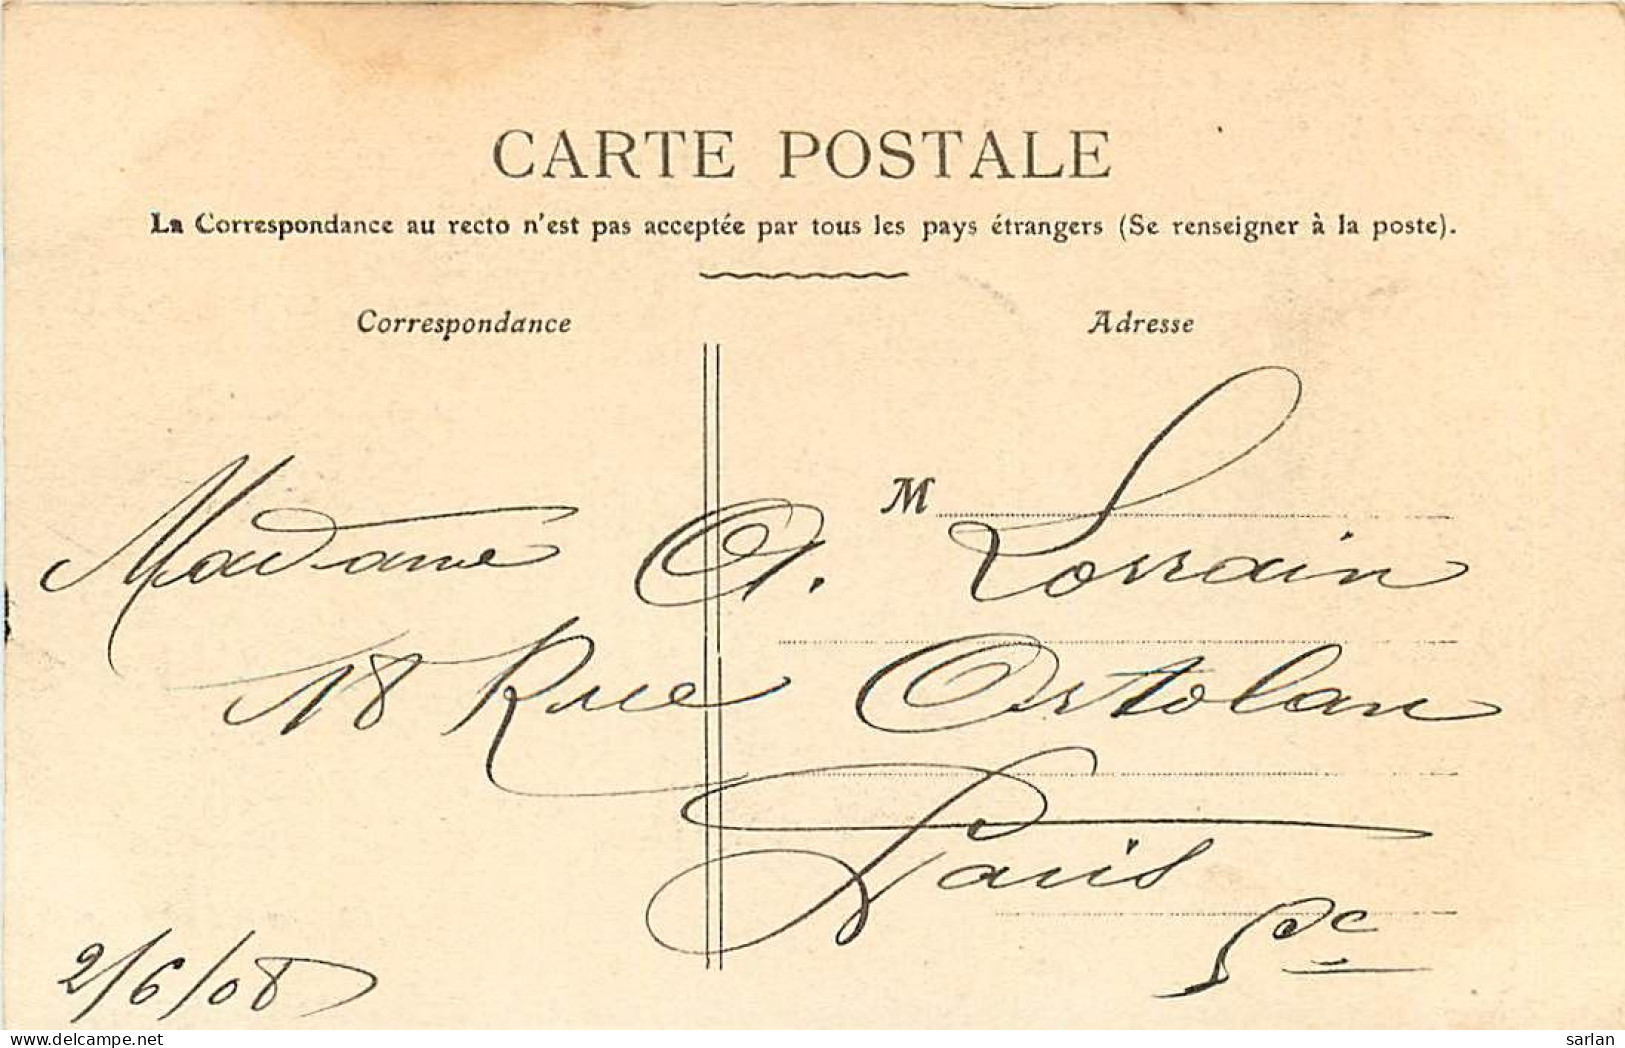 CARTE POSTALE
La Correspondance au recto n'est pas acceptée par tous les pays étrangers (Se renseigner à la poste).
Correspondance
Adresse
M
Madame A. Lorrain
18 Rue Ortolan
Paris
5e
2/6/08
delcampe.net
sarlan